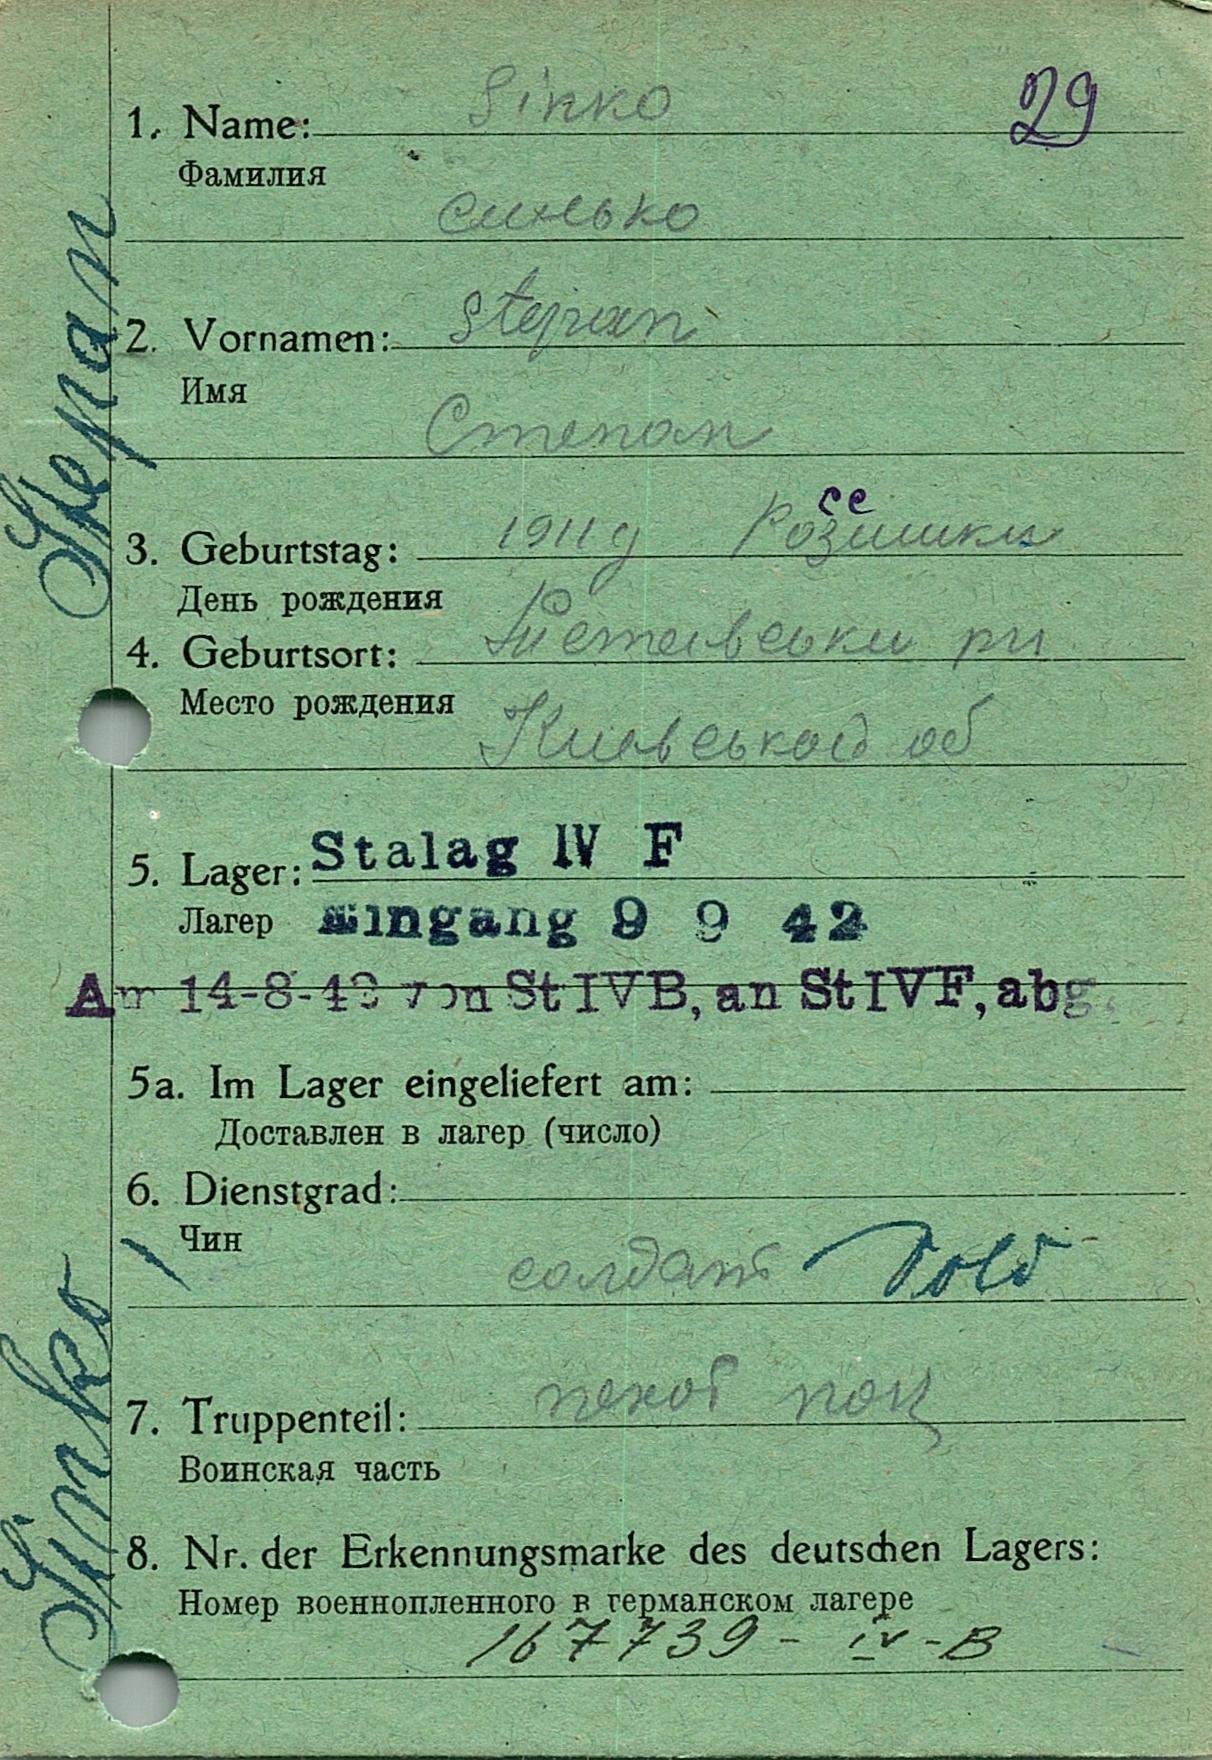 29
1. Name: Sinko
Фамилия
синько
2. Vornamen: Stepan
Имя
Степан
3. Geburtstag: 1911 д
День рождения
4. Geburtsort:
Место рождения
Киевськой об
5. Lager: Stalag IV F
Лагер Eingang 9 9 42
Am 14-8-42 von St IV B, an St IV F, abg.
5a. Im Lager eingeliefert am:
Доставлен в лагер (число)
6. Dienstgrad:
Чин
солдат Sold
7. Truppenteil: пехот
Воинская часть
8. Nr. der Erkennungsmarke des deutschen Lagers:
Номер военнопленного в германском лагере
167739 - IV - B
Sinko, Stepan